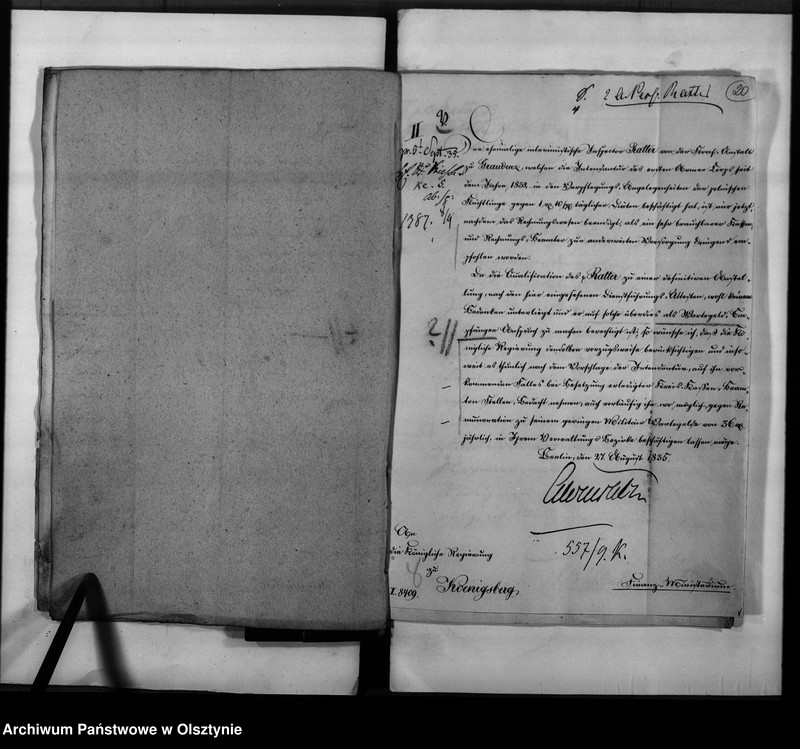 20
2 a Pers: Ratter
II
pr. 5t Sept. 35.
1387. 9/9
Der ehemalige interimistische Inspector Ratter von der Straf-Anstalt
zu Graudenz, welchen die Intendantur des ersten Armee Corps seit
dem Jahre 1832. in den Verpflegungs-Angelegenheiten der polnischen
Flüchtlinge gegen täglicher Diäten beschäftigt hat, ist mir jetzt,
nachdem das Rechnungswesen beendigt, als ein sehr brauchbarer Kassen-
und Rechnungs-Beamter zur anderweiten Versorgung dringend em-
pfohlen worden.
Da die Qualification des p Ratter zu einer definitiven Anstel-
lung, nach den hier eingesehenen Dienstführungs-Attesten, wohl keinem
Bedenken unterliegt und er auf solche überdies als Wartegeld-Em-
pfänger Anspruch zu machen berechtigt ist; so wünsche ich, daß die Kö-
nigliche Regierung denselben vorzugsweise berücksichtigen und inso-
weit es thunlich nach dem Vorschlage der Intendantur, auf ihn vor-
kommenden Falles bei Besetzung erledigter Kreis-Kassen-Beam-
ten Stellen, Bedacht nehmen, auch vorläufig ihn wo möglich, gegen Re-
muneration zu seinem geringen Militair Wartegelde von 36
jährlich, in Ihrem Verwaltungs-Bezirke beschäftigen lassen möge.
Berlin, den 27. August 1835.
An
die Königliche Regierung
zu
Koenigsberg.
I. 8409.
557/9. K.
Finanz-Ministerium.
Archiwum Państwowe w Olsztynie